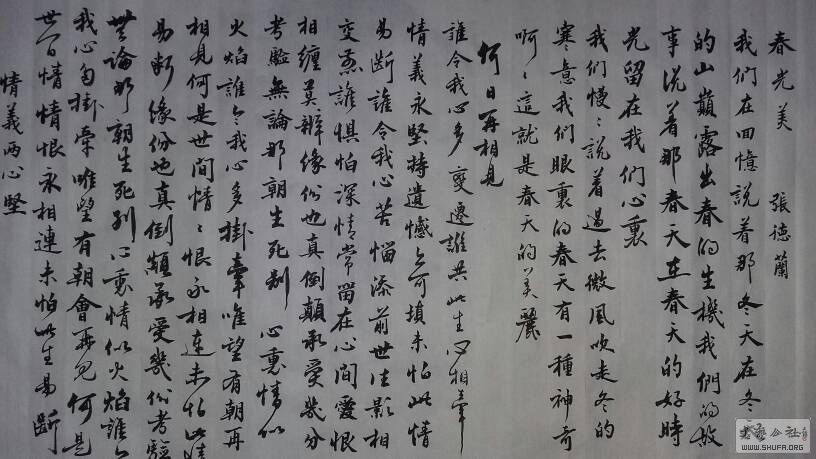 春光美 張德蘭
我們在回憶說着那冬天在冬
的山巔露出春的生機我們的故
事說着那春天在春天的好時
光留在我們心裏
我们慢〻說着過去微風吹走冬的
寒意我们眼裏的春天有一種神奇
啊〻這就是春天的美麗
何日再相見
誰令我心多變遷誰共此生心相牽
情義永堅持遺憾亦可填未怕此情
易斷誰令我心苦惱添前世佳影相
交煎誰懼怕深情常留在心間愛恨
相纏莫辨緣份也真倒顛承受幾分
考驗無論那朝生死别 心裏情似
火焰誰令我心多掛牽唯望有朝再
相見何是世間情〻恨永相連未怕此情
易斷緣份也真倒顛承受幾份考驗
無論那朝生死别心裏情似火焰誰令
我心多掛牽唯望有朝會再见何是
世間情情恨永相連未怕此生易斷
情義两心堅
書藝公社
WWW.SHUFA.ORG